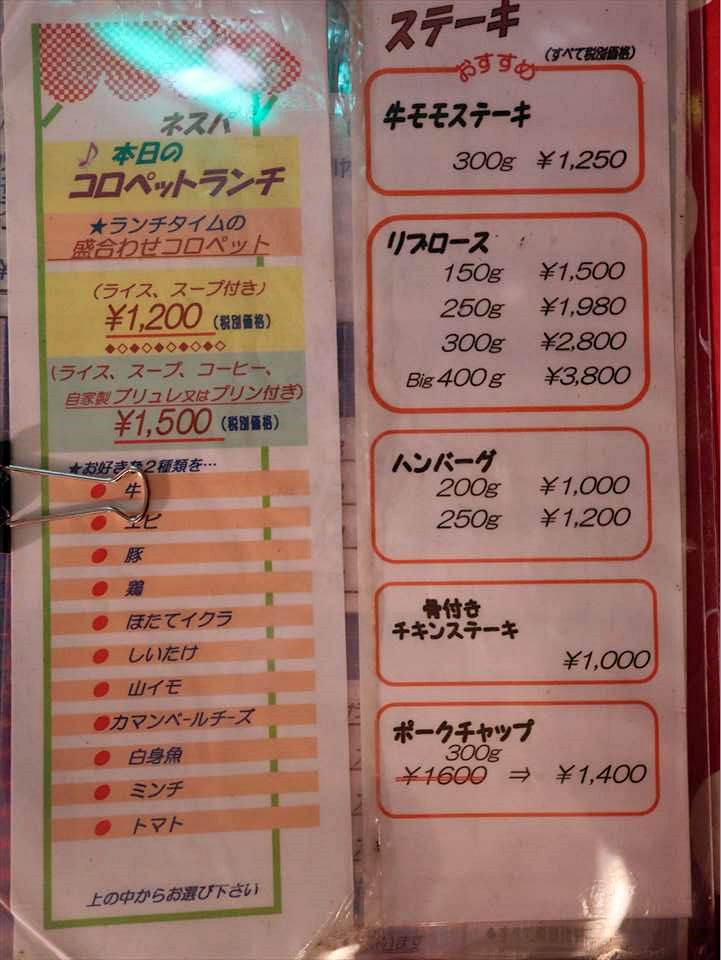 ネスパ
♪ 本日の
コロペットランチ
★ランチタイムの
盛合わせコロペット
(ライス、スープ付き)
¥1,200 (税別価格)
(ライス、スープ、コーヒー、
自家製ブリュレ又はプリン付き)
¥1,500 (税別価格)
★お好きな2種類を…
●牛
●エビ
●豚
●鶏
●ほたてイクラ
●しいたけ
●山イモ
●カマンベールチーズ
●白身魚
●ミンチ
●トマト
上の中からお選び下さい
ステーキ
(すべて税別価格)
おすすめ
牛モモステーキ
300g ¥1,250
リブロース
150g ¥1,500
250g ¥1,980
300g ¥2,800
Big 400g ¥3,800
ハンバーグ
200g ¥1,000
250g ¥1,200
骨付き
チキンステーキ
¥1,000
ポークチャップ
300g
¥1600 ⇒ ¥1,400